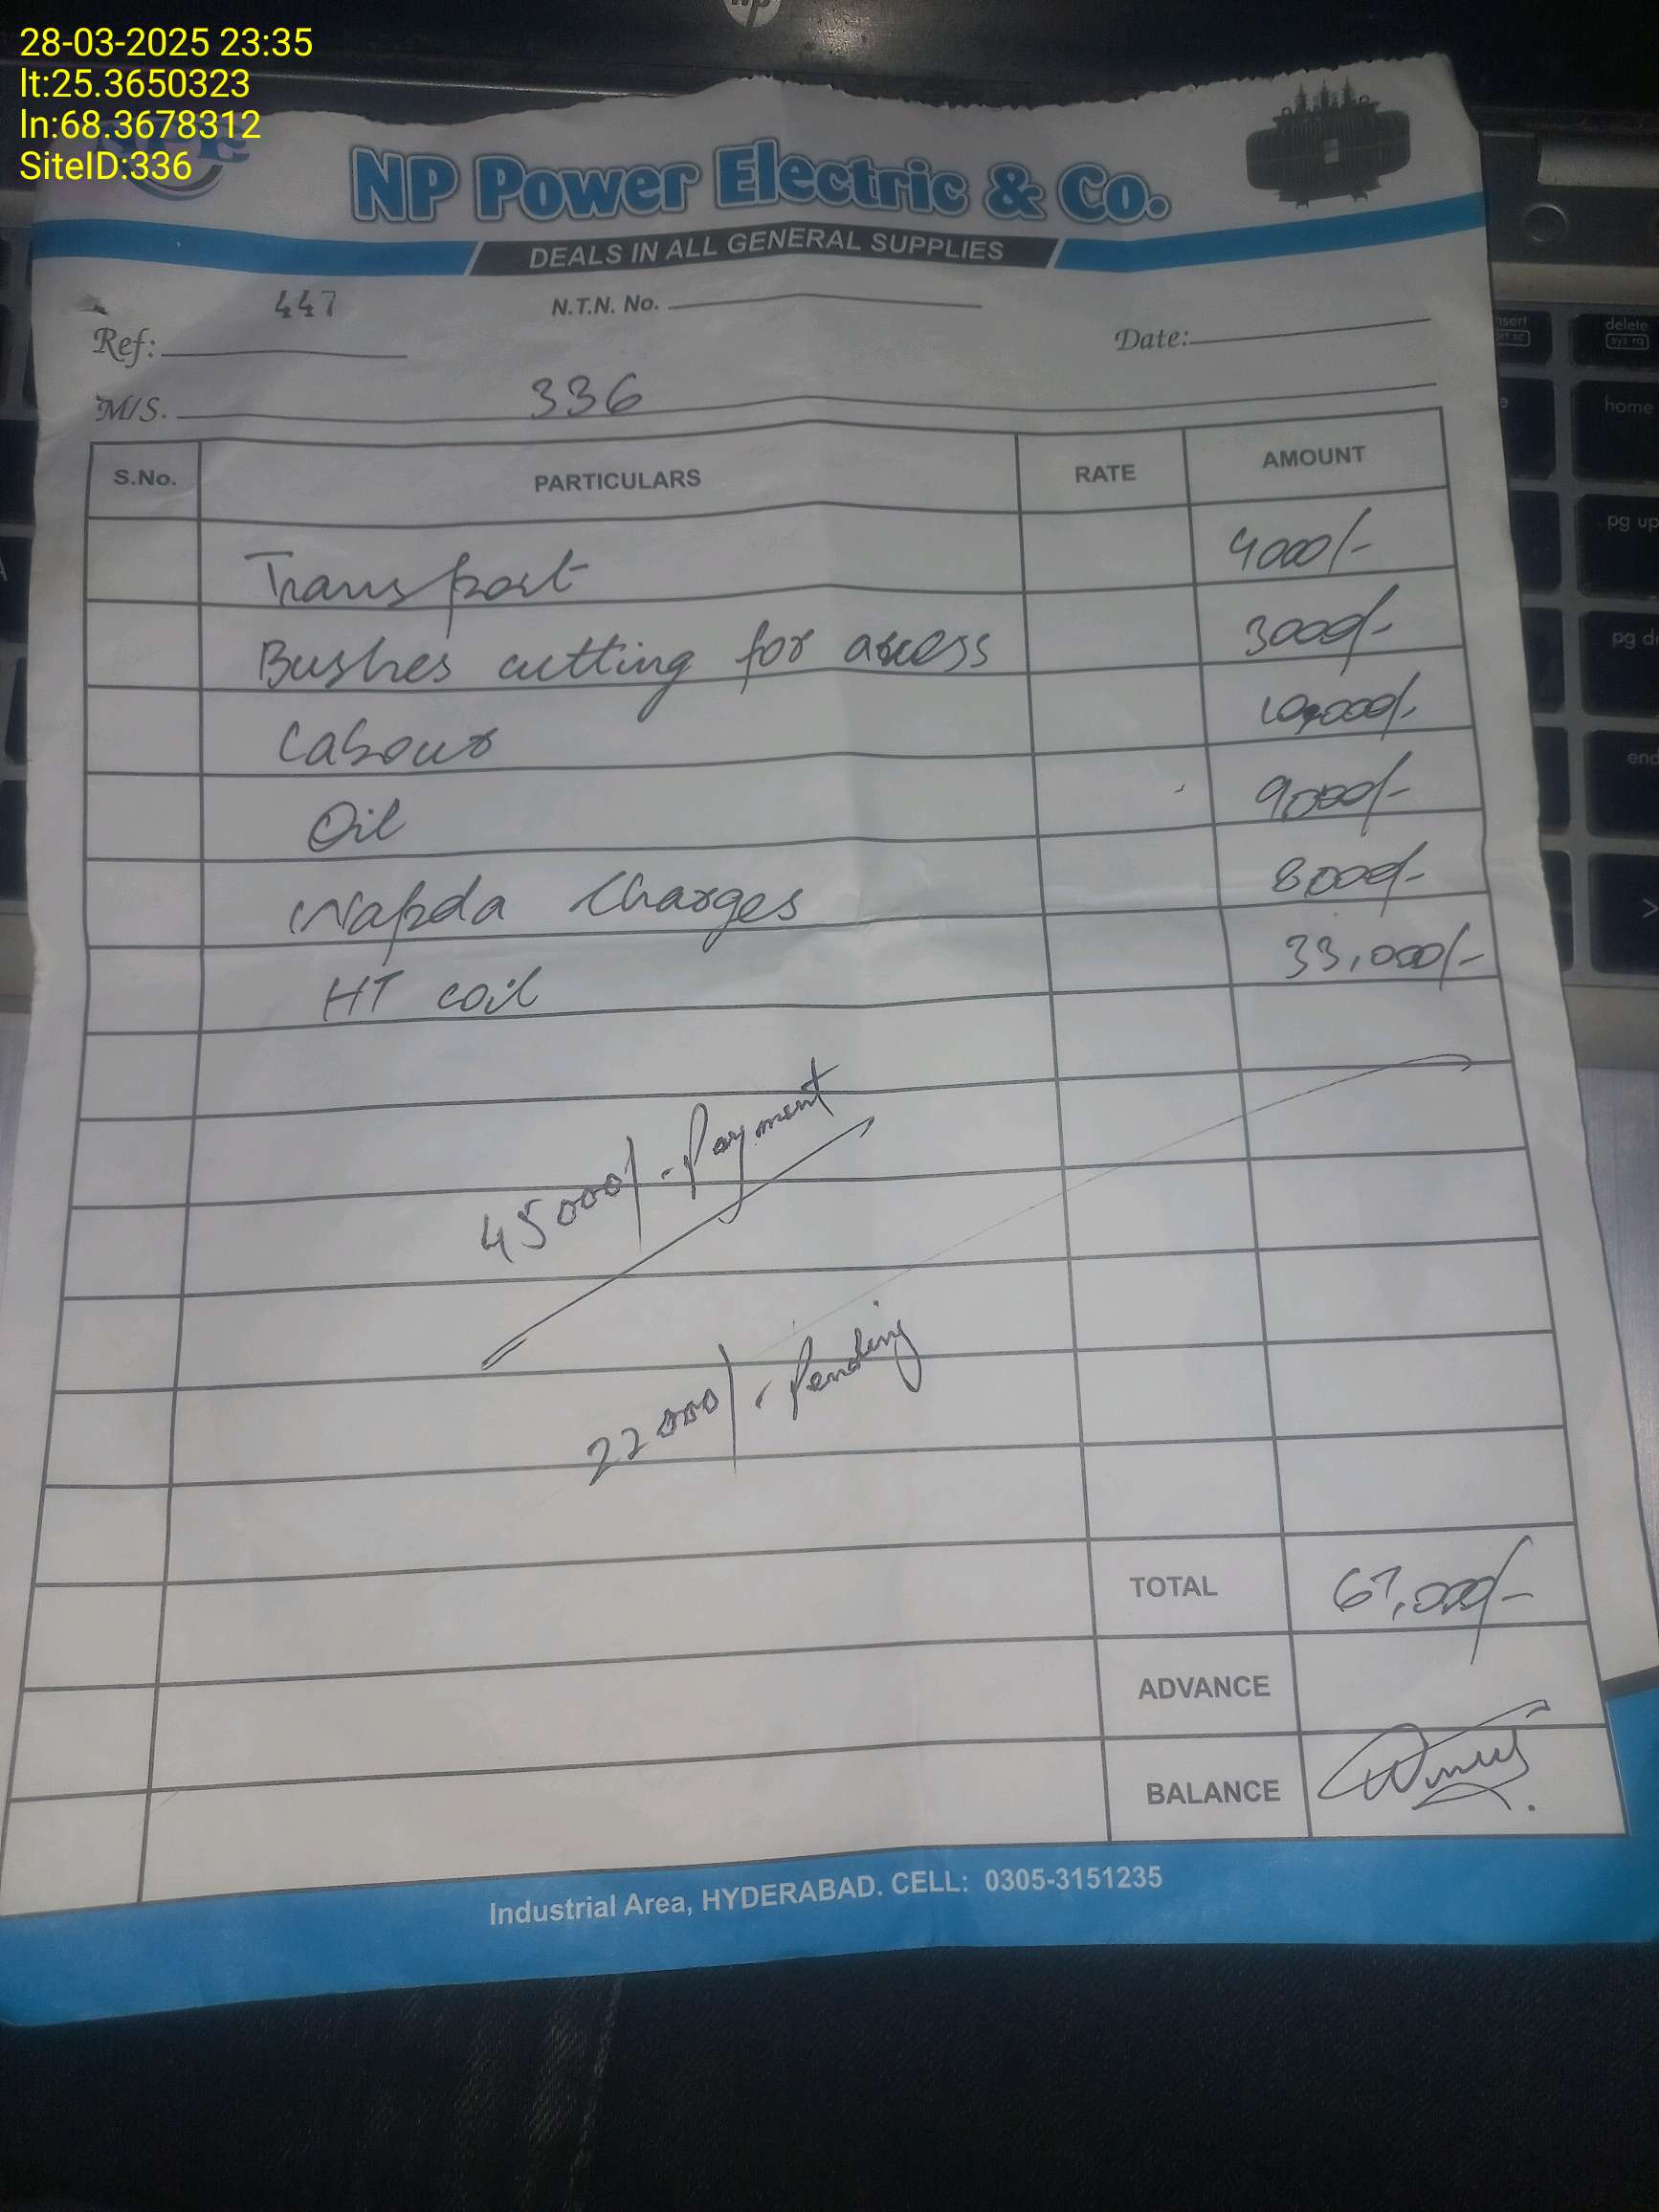 28-03-2025 23:35
lt:25.3650323
ln:68.3678312
SiteID:336
NP Power Electric & Co.
DEALS IN ALL GENERAL SUPPLIES
447
N.T.N. No.
Ref:
Date:
M/S. 336
S.No. PARTICULARS RATE AMOUNT
Transport 4000/-
Bushes cutting for access 3000/-
Labour 10,000/-
Oil 9000/-
Wapda Charges 8000/-
HT coil 33,000/-
45000/- Payment
22000/- Pending
TOTAL 67,000/-
ADVANCE
BALANCE
Industrial Area, HYDERABAD. CELL: 0305-3151235
insert
delete
home
pg up
end